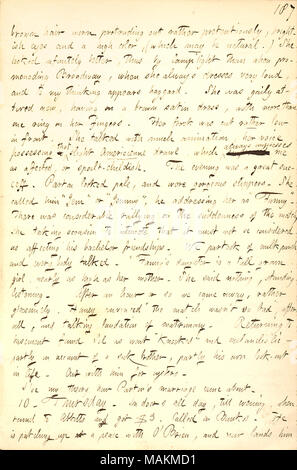 187
brown hair worn protruding out rather pretentiously, brightish
eyes and a high color, (which may be natural.) She
looked infinitely better, thus by lamplight than when promenading
Broadway, when she always dresses very loud,
and to my thinking appears haggard. She was gaily attired
now, having on a brown satin dress, with more than
one ring on her fingers. Her frock was cut rather low
in front. She talked with much animation, her voice
possessing that slight Americanee drawl which always impresses me
as affected or spoilt-childish. The evening was a great success.
Parton looked pale, and wore gorgeous slippers. She
called him "Jem" or "Jemmy", he addressing her as Fanny.
There was considerable rallying on the suddenness of the match,
she taking occasion to remark that it must not be considered
as affecting his bachelor friendships. We partook of milk punch
and everybody talked. Fanny's daughter is a tall grown
girl, nearly as large as her mother. She said nothing, standing
listening. After an hour or so we came away, rather
pleasantly. Haney surmised the match wasn't so bad, after
all, and talking laudation of matrimony. Returning to
basement found Sol as went "Knocks" and melancholic
partly on account of a sick brother, partly his own look-out
in life. Out with him for oysters.
I've my theory how Parton's marriage came about.
10. Tuesday. In doors all day, till evening, then
round to Abbotts and got $3. Called on Banks. He
is patching up a peace with O'Brien, and now lauds him